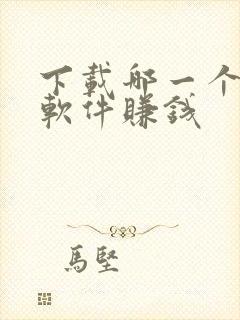 下載哪一个
軟件賺錢
馬堅